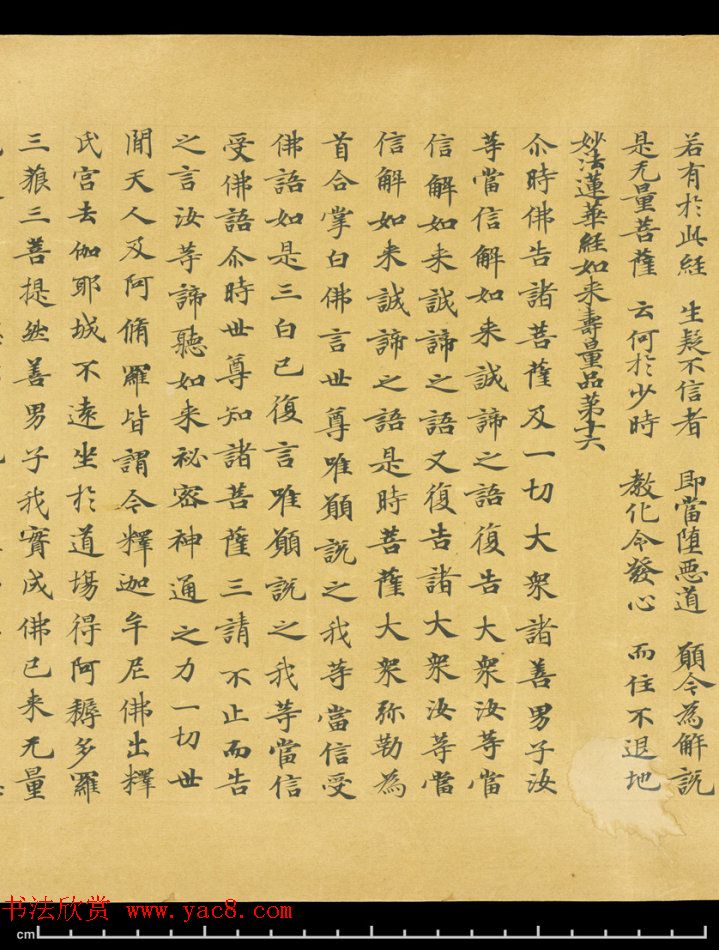 若有於此経 生疑不信者 即當堕惡道 願今為解説
是无量菩薩 云何於少時 教化令發心 而住不退地
妙法蓮華経如来壽量品苐十六
尒時佛告諸菩薩及一切大衆諸善男子汝
等當信解如来誠諦之語復告大衆汝等當
信解如来誠諦之語又復告諸大衆汝等當
信解如来誠諦之語是時菩薩大衆弥勒為
首合掌白佛言世尊唯願説之我等當信受
佛語如是三白已復言唯願説之我等當信
受佛語尒時世尊知諸菩薩三請不止而告
之言汝等諦聽如来祕密神通之力一切世
間天人及阿脩羅皆謂今釋迦牟尼佛出釋
氏宮去伽耶城不遠坐於道場得阿耨多羅
三藐三菩提然善男子我實成佛已来无量
书法欣赏 www.yac8.com
cm